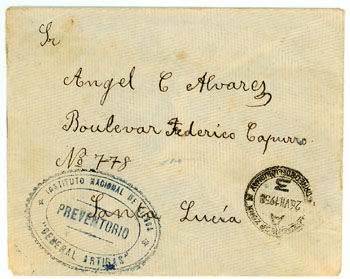 Sr
Angel C Alvarez
Boulevar Federico Capurro
No 778
Santa Lucía
INSTITUTO NACIONAL DE
PREVENTORIO
"GENERAL ARTIGAS"